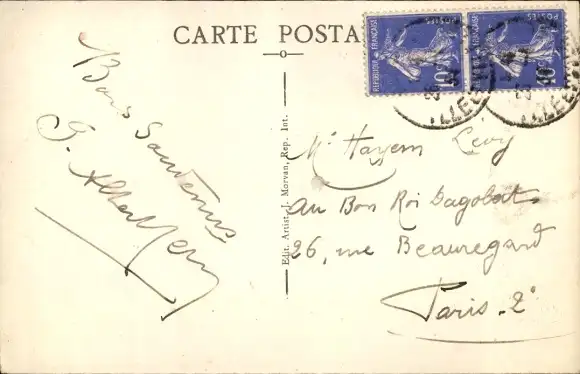 CARTE POSTA
POSTES
REPUBLIQUE FRANÇAISE
10c
POSTES
REPUBLIQUE FRANÇAISE
10c
Bons Souvenirs
G.
Edit. Artist. J. Morvan, Rep. Int.
Mr Hayem Lévy
au Bon Roi Dagobert
26, rue Beauregard
Paris - 2e